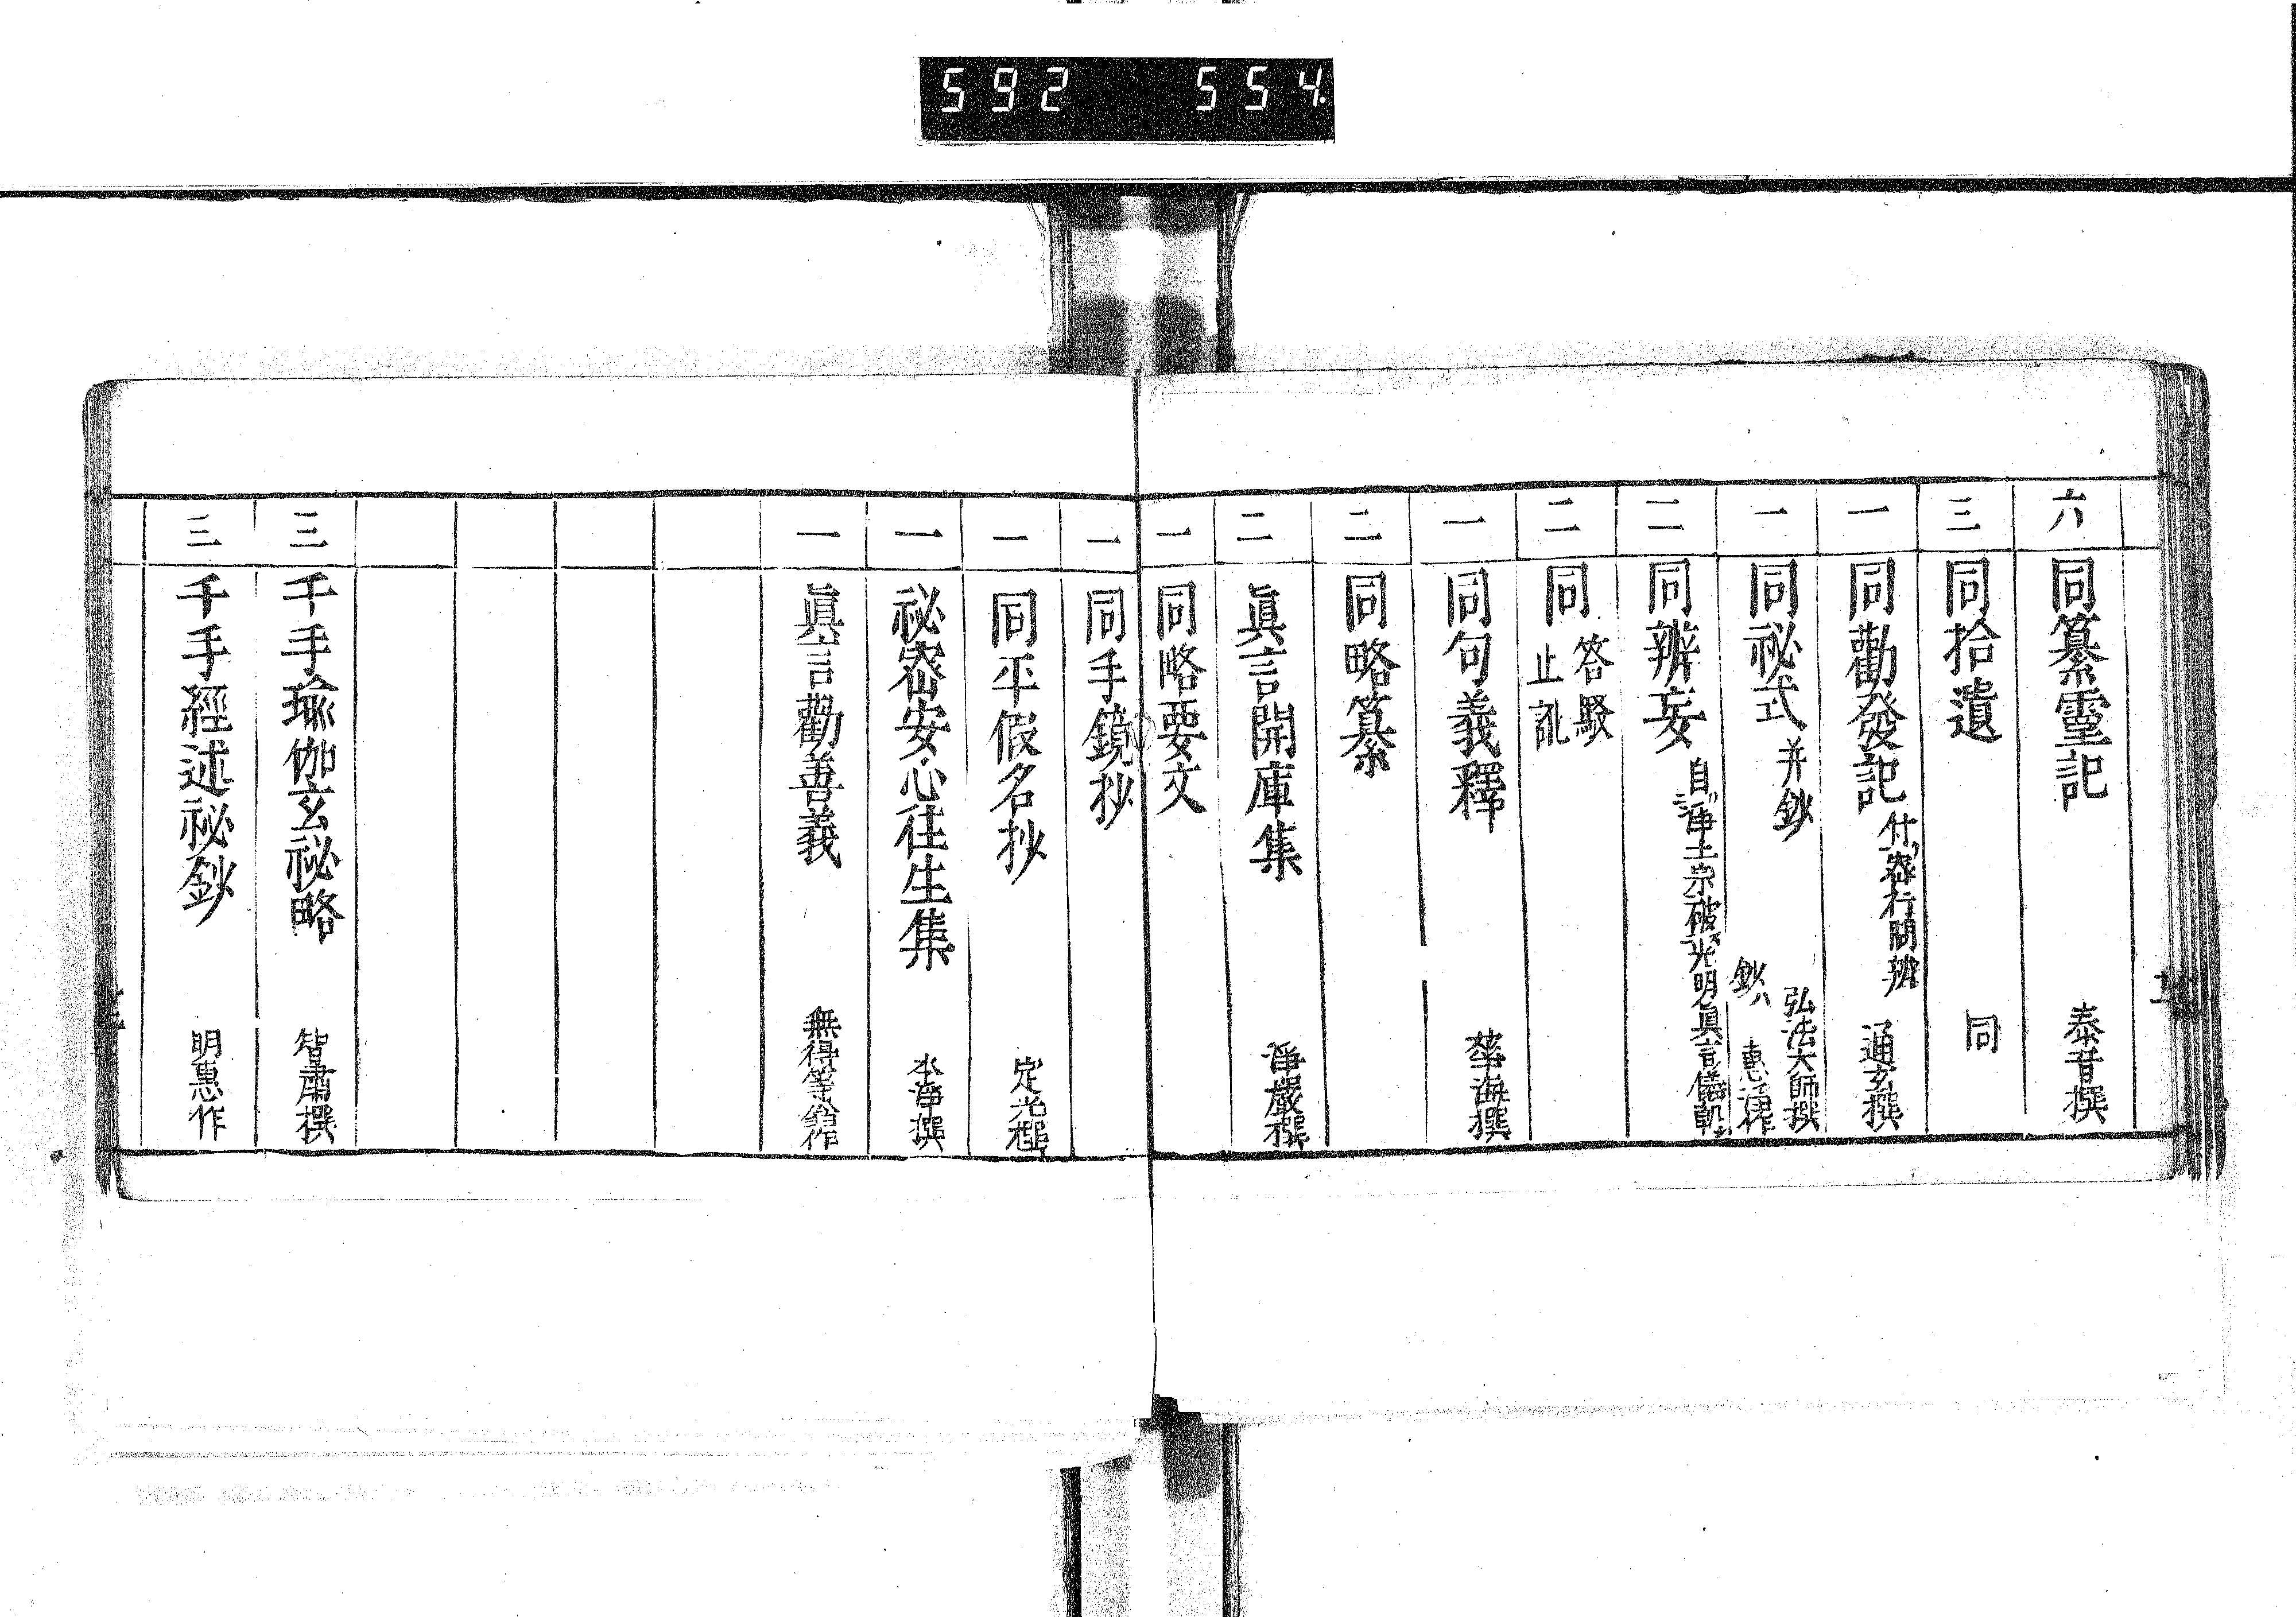 592 554
六 同纂靈記 泰音撰
三 同拾遺 同
一 同勸發記 付密行問辨 通玄撰
一 同祕式 并鈔 弘法大師撰
鈔ハ 惠淨作
二 同辨妄 自淨土宗破光明眞言儀軌
二 同 答駁
止訛
一 同句義釋 華海撰
二 同略纂
二 眞言開庫集 淨嚴撰
一 同略要文
一 同手鏡抄
一 同平假名抄 定光撰
一 祕密安心往生集 本淨撰
一 眞言勸善義 無得等作
三 千手瑜伽玄祕略 智肅撰
三 千手經述祕鈔 明惠作